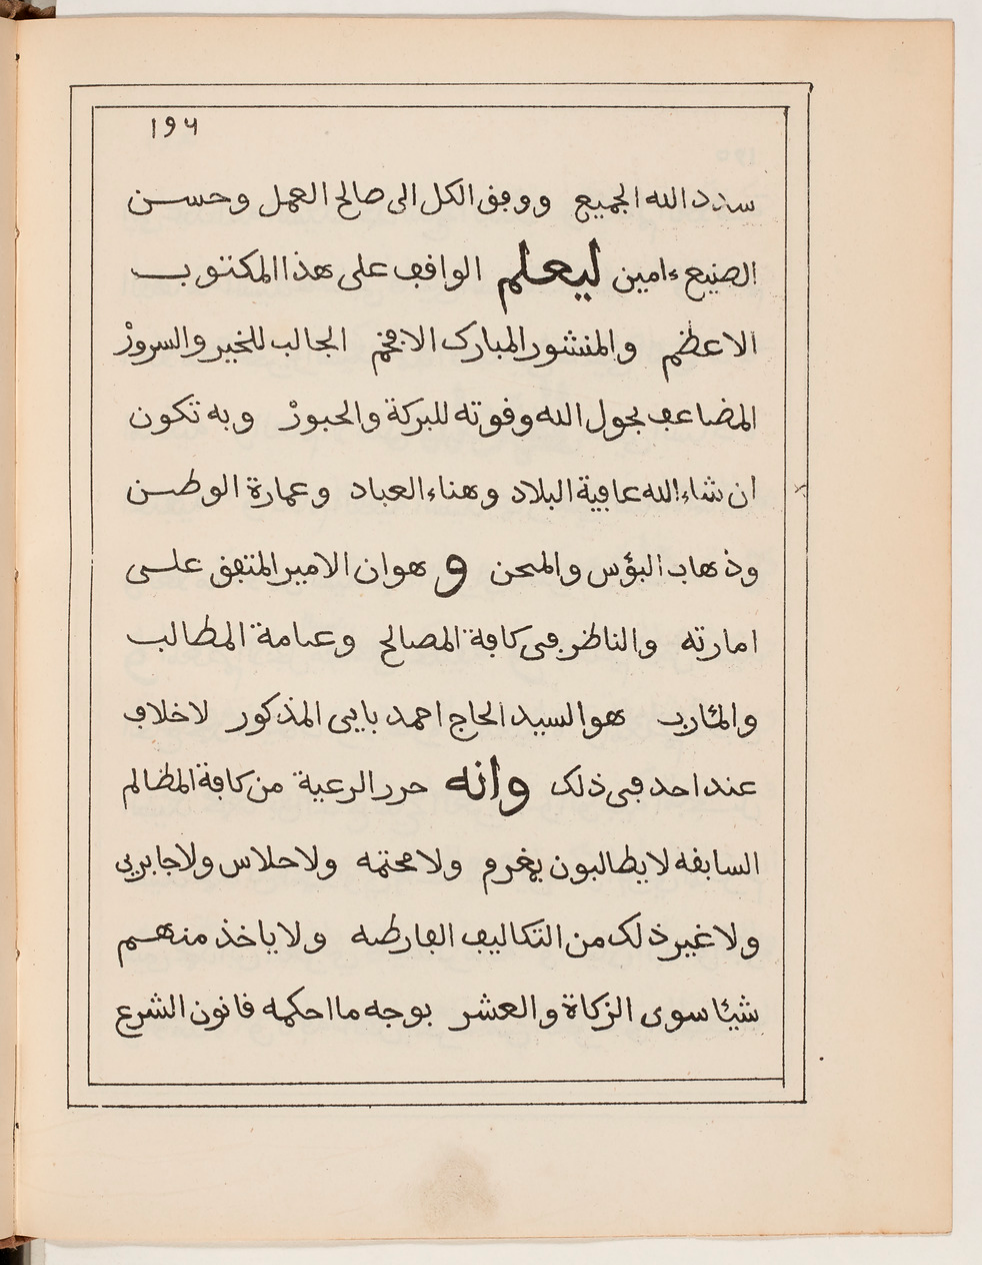 ١٩٦
سدد الله الجميع ووفق الكل الى صالح العمل وحسن
الصنيع ءامين ليعلم الواقف على هذا المكتوب
الاعظم والمنشور المبارك الافخم الجالب للخير والسرور
المضاعف بحول الله وقوته للبركة والحبور وبه تكون
ان شاء الله عافية البلاد وهناء العباد وعمارة الوطن
وذهاب البؤس والمحن و هو ان الامير المتفق على
امارته والناظر في كافة المصالح وعامة المطالب
والمئارب هو السيد الحاج احمد بايى المذكور لاخلاف
عند احد في ذلك وانه حرر الرعية من كافة المظالم
السابقه لا يطالبون بغرم ولا محتمه ولا حلاس ولا جابرى
ولا غير ذلك من التكاليف الفارطه ولا ياخذ منهم
شيئا سوى الزكاة والعشر بوجه ما احكمه قانون الشرع